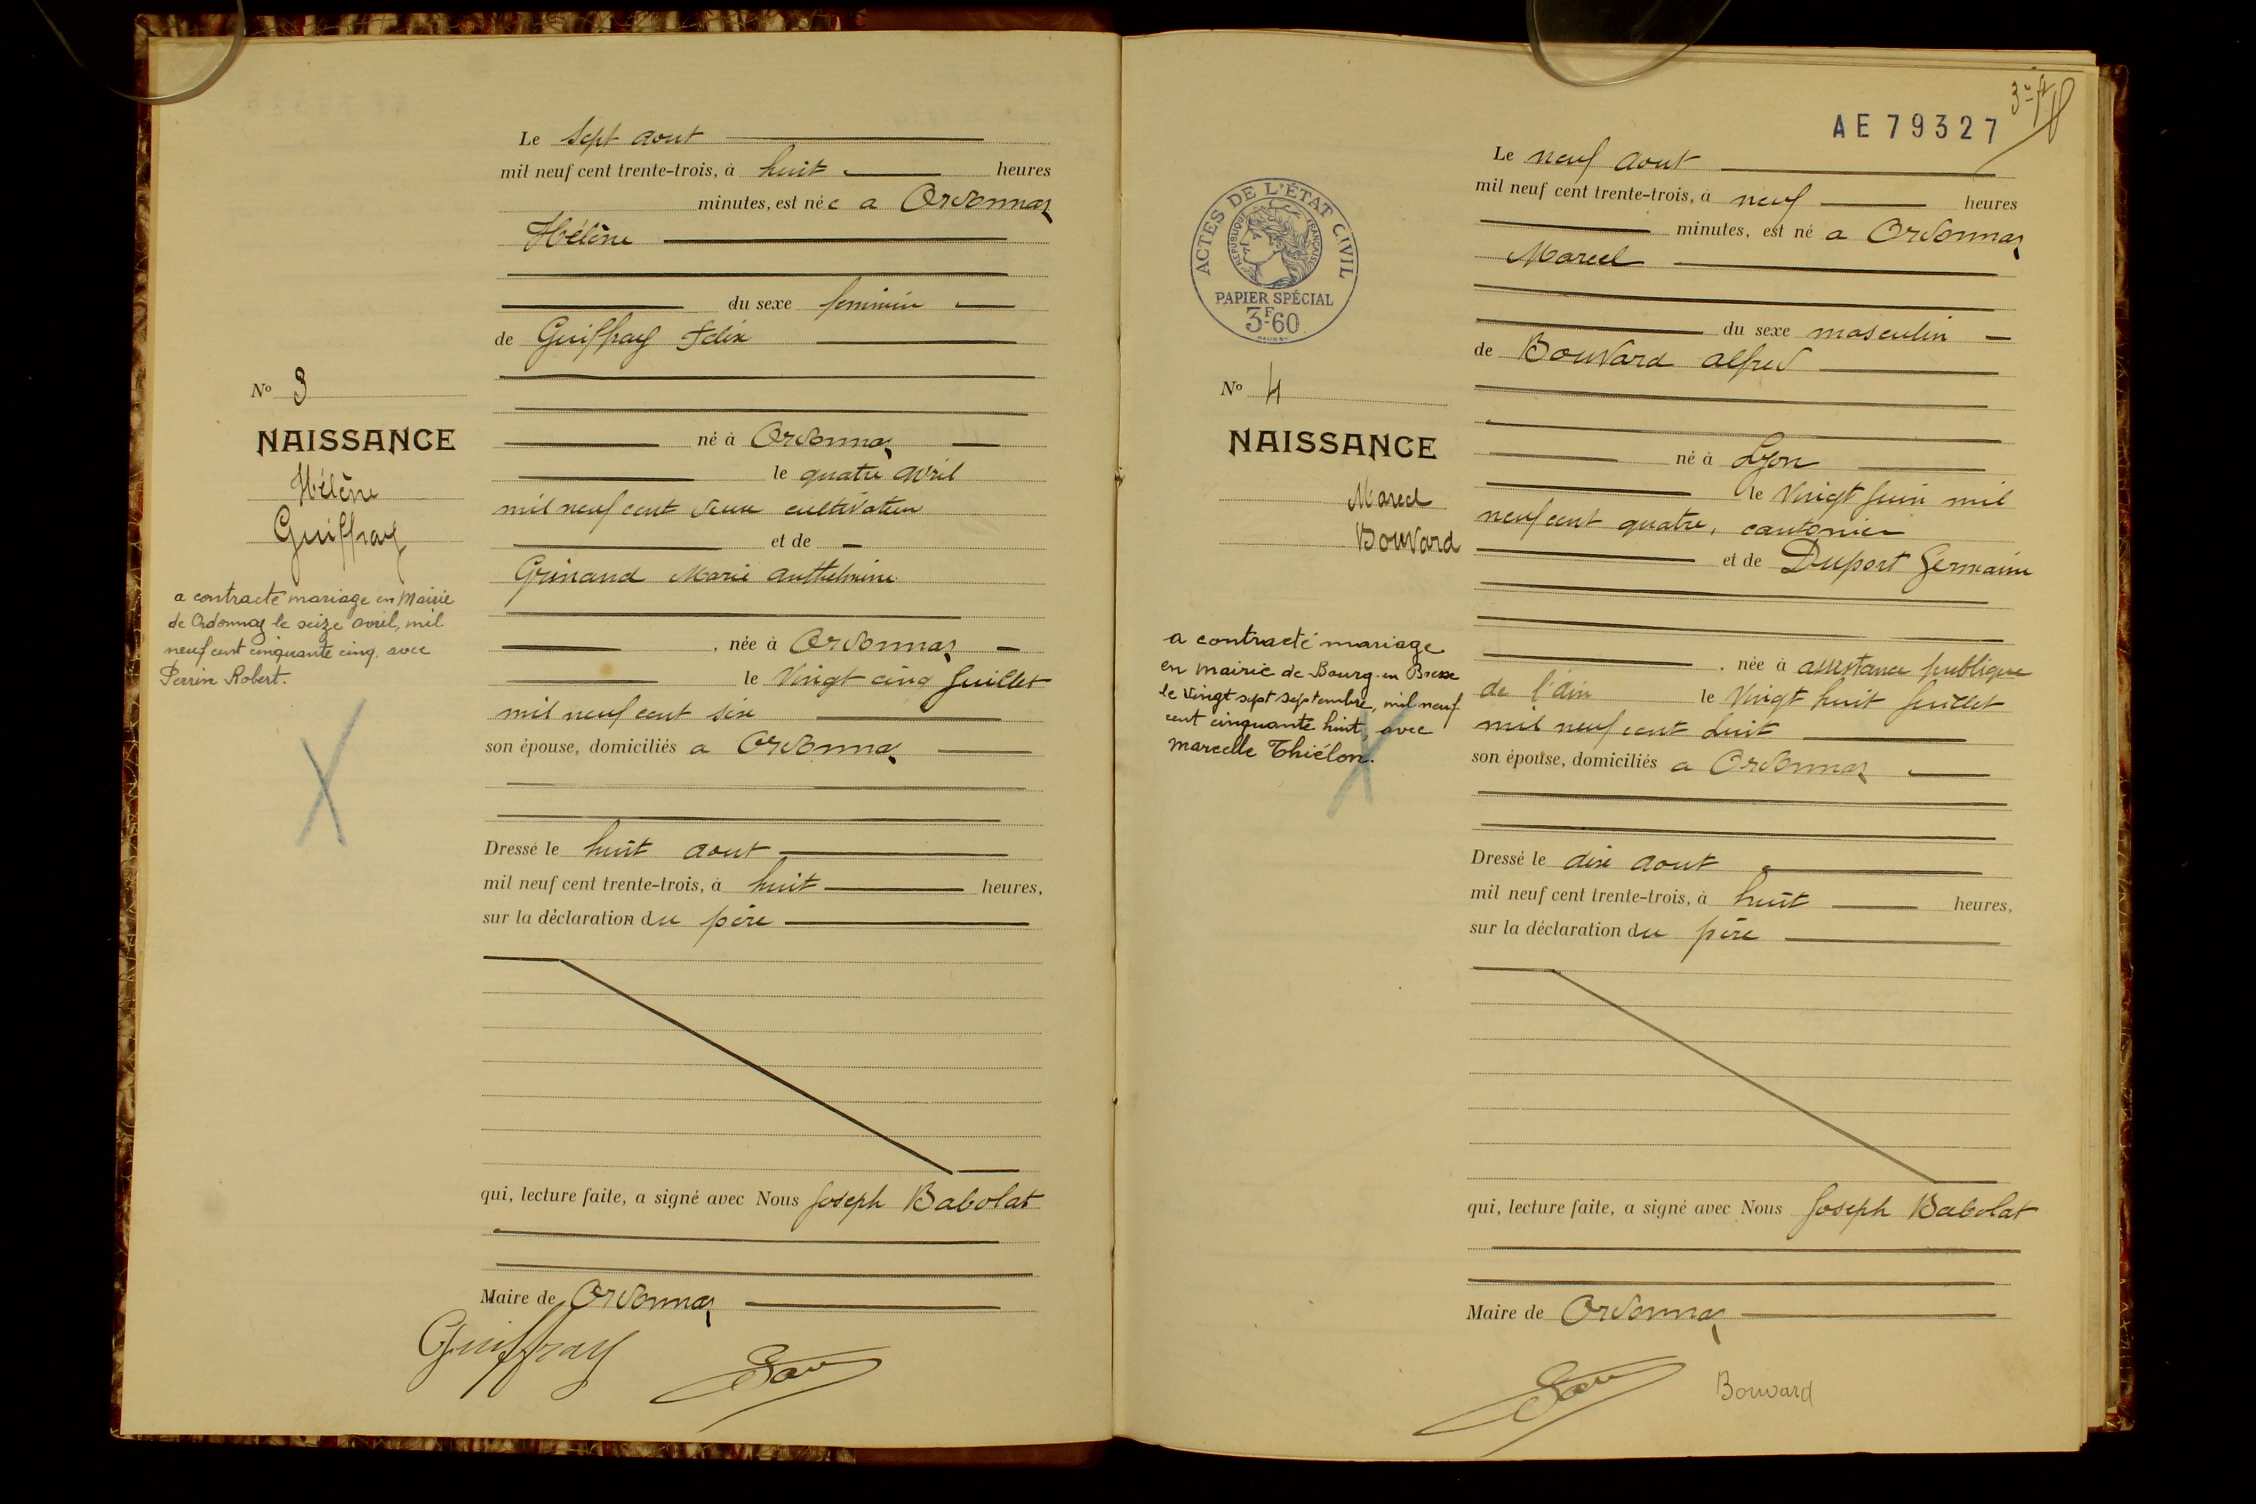 Le sept aout
mil neuf cent trente-trois, à huit heures
minutes, est née a Ordonnaz
Hélène
du sexe feminin
de Guiffray Felix
No 3
né à Ordonnaz
NAISSANCE
le quatre avril
Hélène
mil neuf cent deux cultivateur
Guiffray
et de
Grinand Marie Anthelmine
a contracté mariage en Mairie
de Ordonnaz le seize avril, mil
neuf cent cinquante cinq, avec
Perrin Robert.
, née à Ordonnaz
le Vingt cinq Juillet
mil neuf cent six
son épouse, domiciliés a Ordonnaz
Dressé le huit aout
mil neuf cent trente-trois, à huit heures,
sur la déclaration du père
qui, lecture faite, a signé avec Nous Joseph Babolat
Maire de Ordonnaz
Guiffray
AE79327
Le neuf aout
mil neuf cent trente-trois, à neuf heures
minutes, est né a Ordonnaz
Marcel
ACTES DE L'ÉTAT CIVIL
RÉPUBLIQUE FRANÇAISE
PAPIER SPÉCIAL
3F60
du sexe masculin
de Bouvard alfred
No 4
NAISSANCE
né à Lyon
Marcel
le Vingt Juin mil
neuf cent quatre, cantonnier
Bouvard
et de Duport Germaine
a contracté mariage
en mairie de Bourg-en Bresse
le vingt sept septembre, mil neuf
cent cinquante huit, avec
Marcelle Thiélon.
, née à assistance publique
de l'Ain le Vingt huit Juillet
mil neuf cent huit
son épouse, domiciliés a Ordonnaz
Dressé le dix aout
mil neuf cent trente-trois, à huit heures,
sur la déclaration du père
qui, lecture faite, a signé avec Nous Joseph Babolat
Maire de Ordonnaz
Bouvard